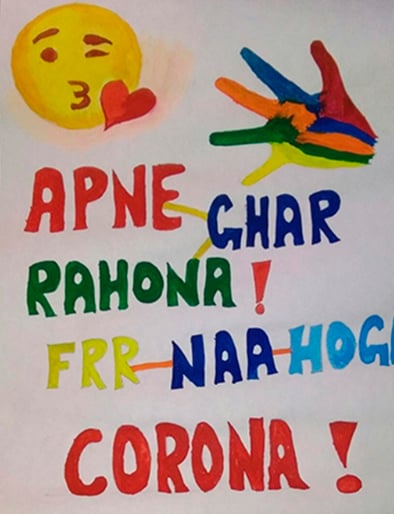 APNE GHAR
RAHONA !
FRR-NAA-HOGA
CORONA !